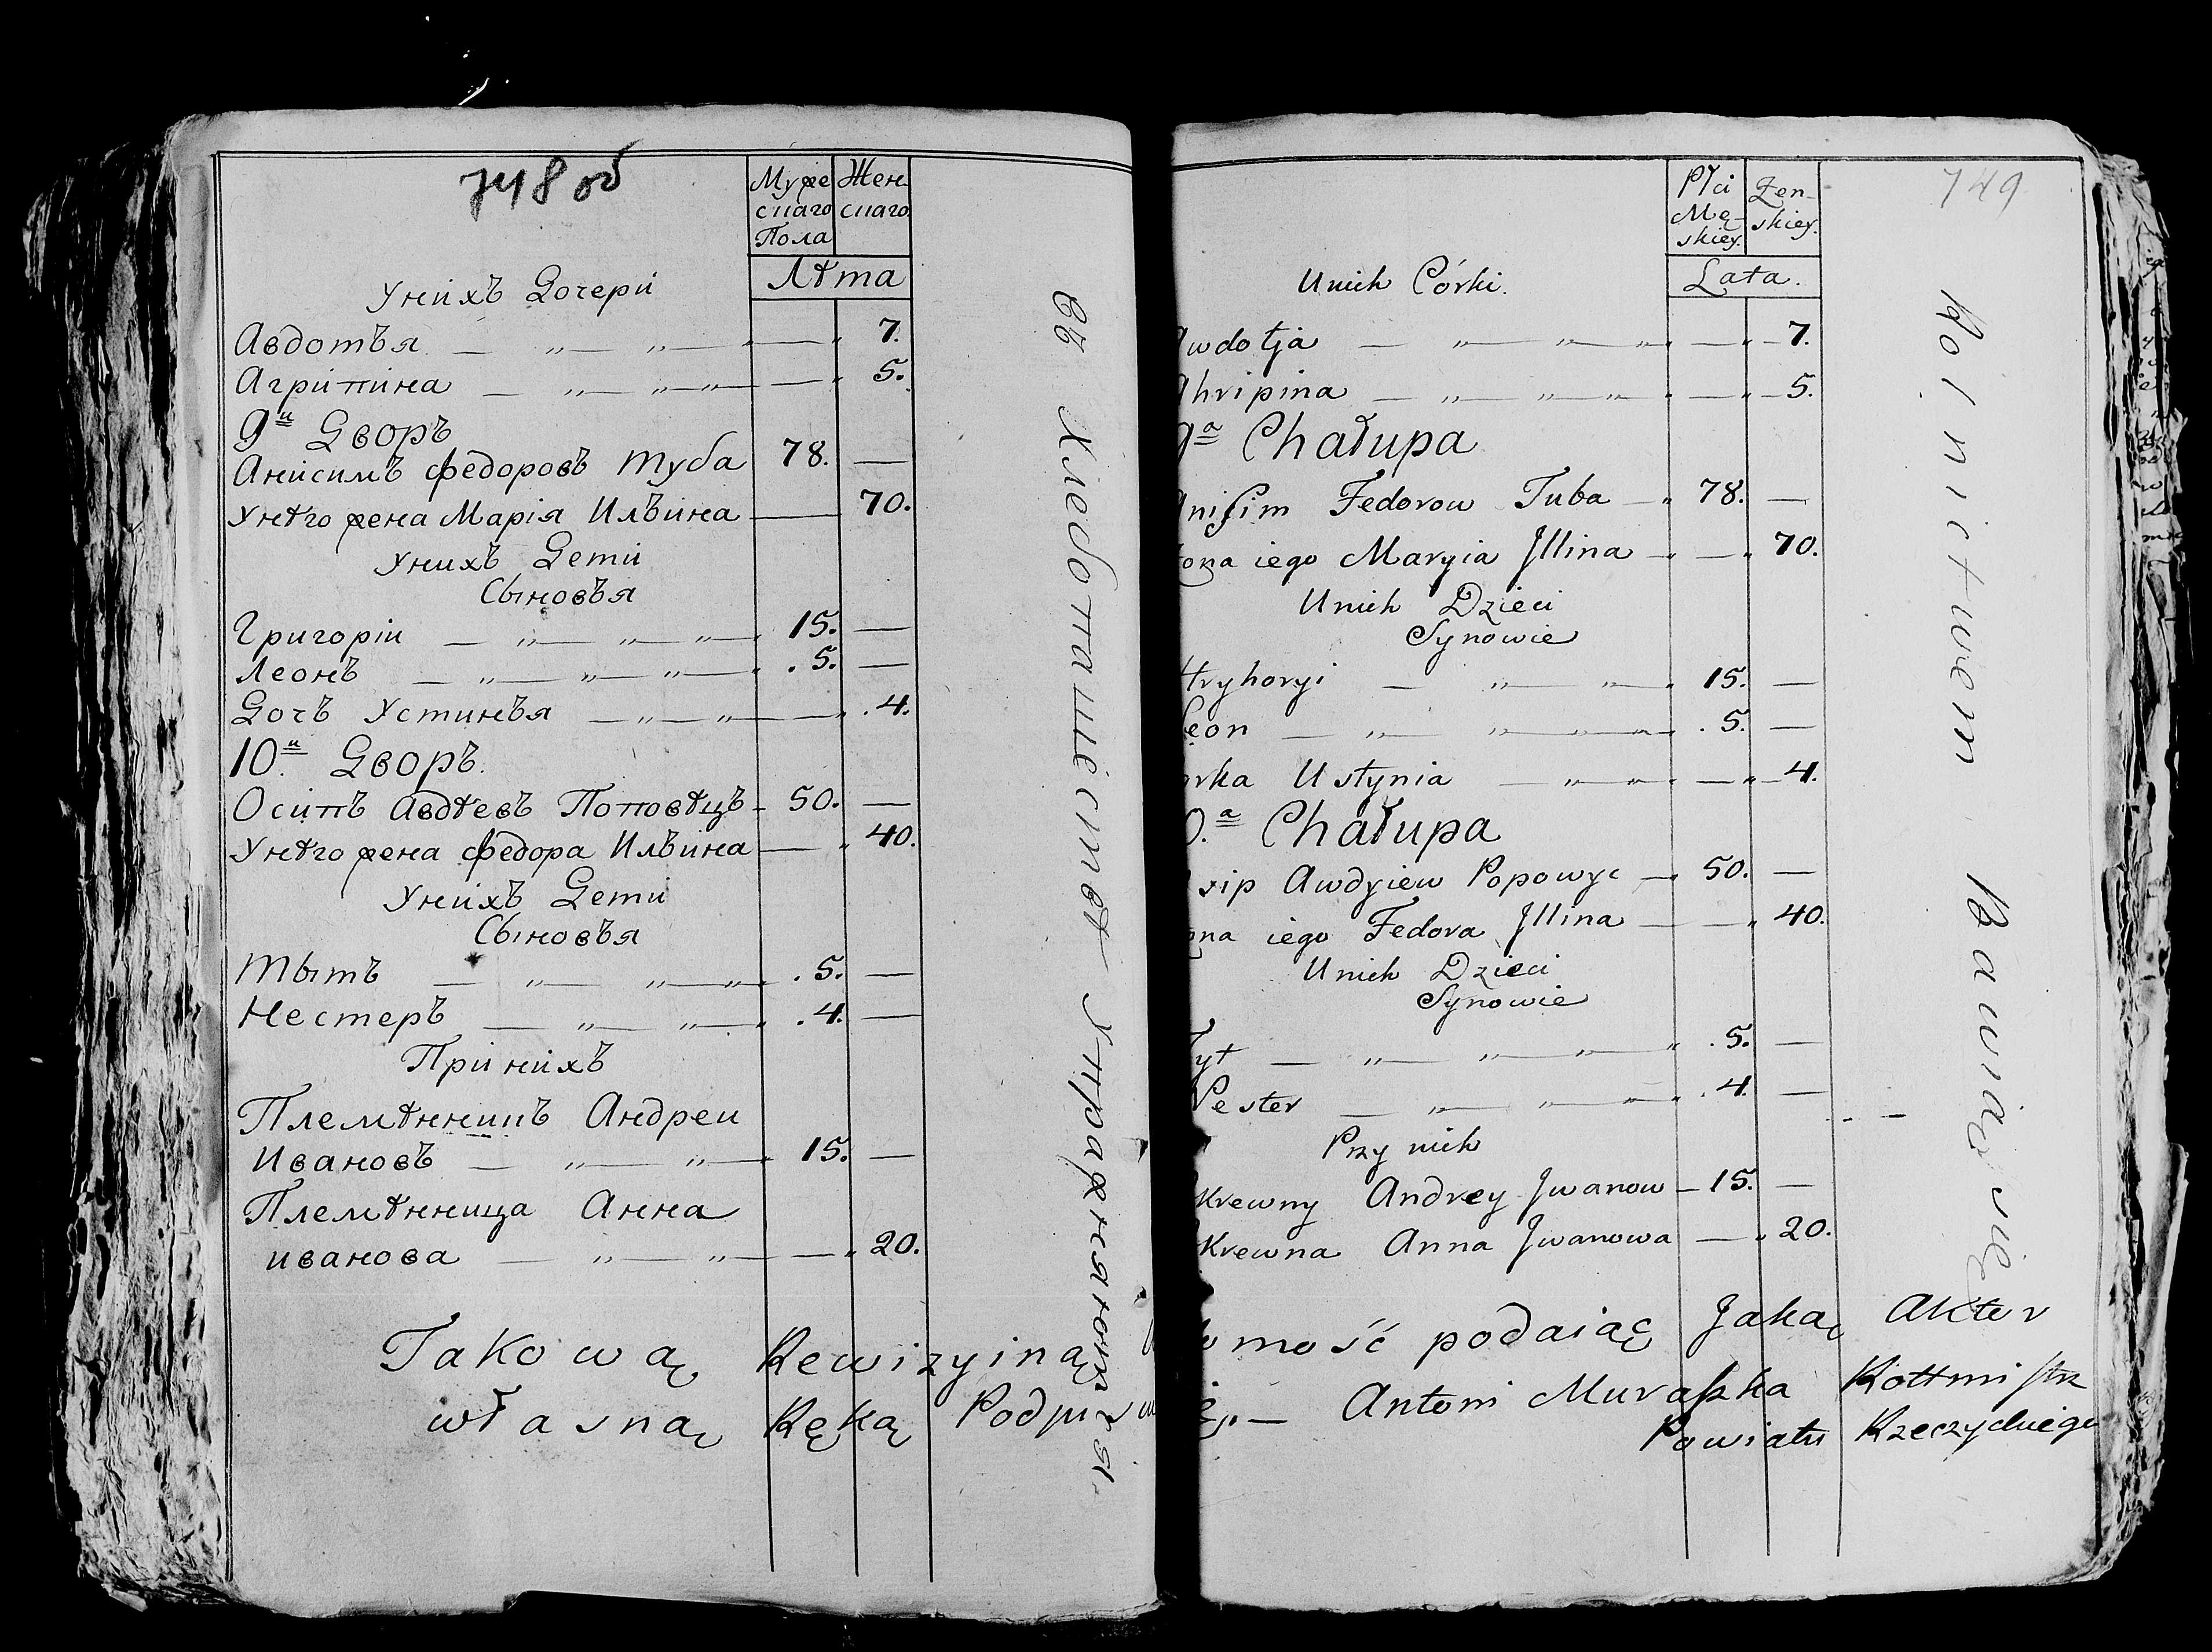 748 об
Муже Жен
скаго скаго
Пола
Лѣта
Унихъ Дочери
Авдотья — „ — „ — 7.
Агрипина — „ — „ — 5.
9й Дворъ
Анисимъ Федоровъ Туба 78. —
Унѣго жена Марія Ильина — 70.
Унихъ Дети
Сыновья
Григоріи — „ — „ — „ — 15. —
Леонъ — „ — „ — „ — 5. —
Дочь Устинья — „ — „ — 4.
10й Дворъ.
Осипъ Авдѣевъ Поповѣцъ — 50. —
Унѣго жена Федора Ильина — 40.
Унихъ Дети
Сыновья
Тытъ — „ — „ — „ 5. —
Нестеръ — „ — „ — 4. —
При нихъ
Племѣнникъ Андреи
Ивановъ — „ — „ — 15. —
Племѣнница Анна
иванова — „ — „ — 20.
въ Хлебопашествѣ Упражняются.
Takową Rewizyiną
własną Ręką
749
Płci Żen-
Mę- skiey.
skiey.
Lata.
U nich Córki.
wdotja — „ — „ — „ — 7.
hripina — „ — „ — „ — 5.
9a Chałupa
nisim Fedorow Tuba — 78. —
ona iego Maryia Jllina — — 70.
U nich Dzieci
Synowie
Hryhoryi — „ — „ 15. —
eon — „ — „ — „ 5. —
rka Ustynia — „ — „ — 4.
0.a Chałupa
sip Awdyiew Popowyc — 50. —
ona iego Fedora Jllina — — 40.
U nich Dzieci
Synowie
yt — „ — „ — „ 5. —
ester — „ — „ — „ 4. —
Przy nich
Krewny Andrey Jwanow — 15. —
Krewna Anna Jwanowa — 20.
Rolnictwem Bawią się
omość podaiąc Jako Aktor
Antoni Muraszka Rottmistrz
Powiatu Rzeczyckiego